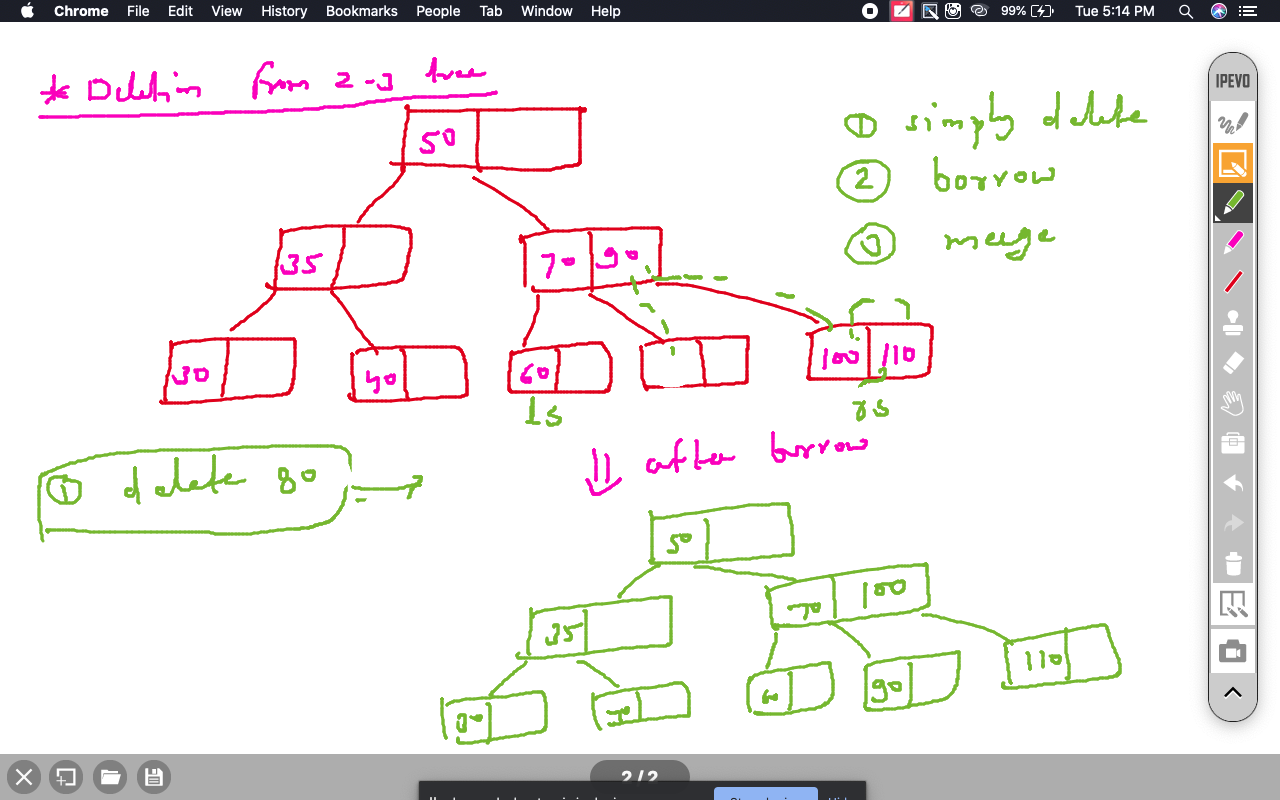 Chrome File Edit View History Bookmarks People Tab Window Help 99% Tue 5:14 PM
* Deletion from 2-3 tree
IPEVO
① simply delete
② borrow
③ merge
50
35
70 90
30
40
60
100 110
ls
rs
① delete 80
after borrow
50
35
70 100
30
40
60
90
110
2 / 2